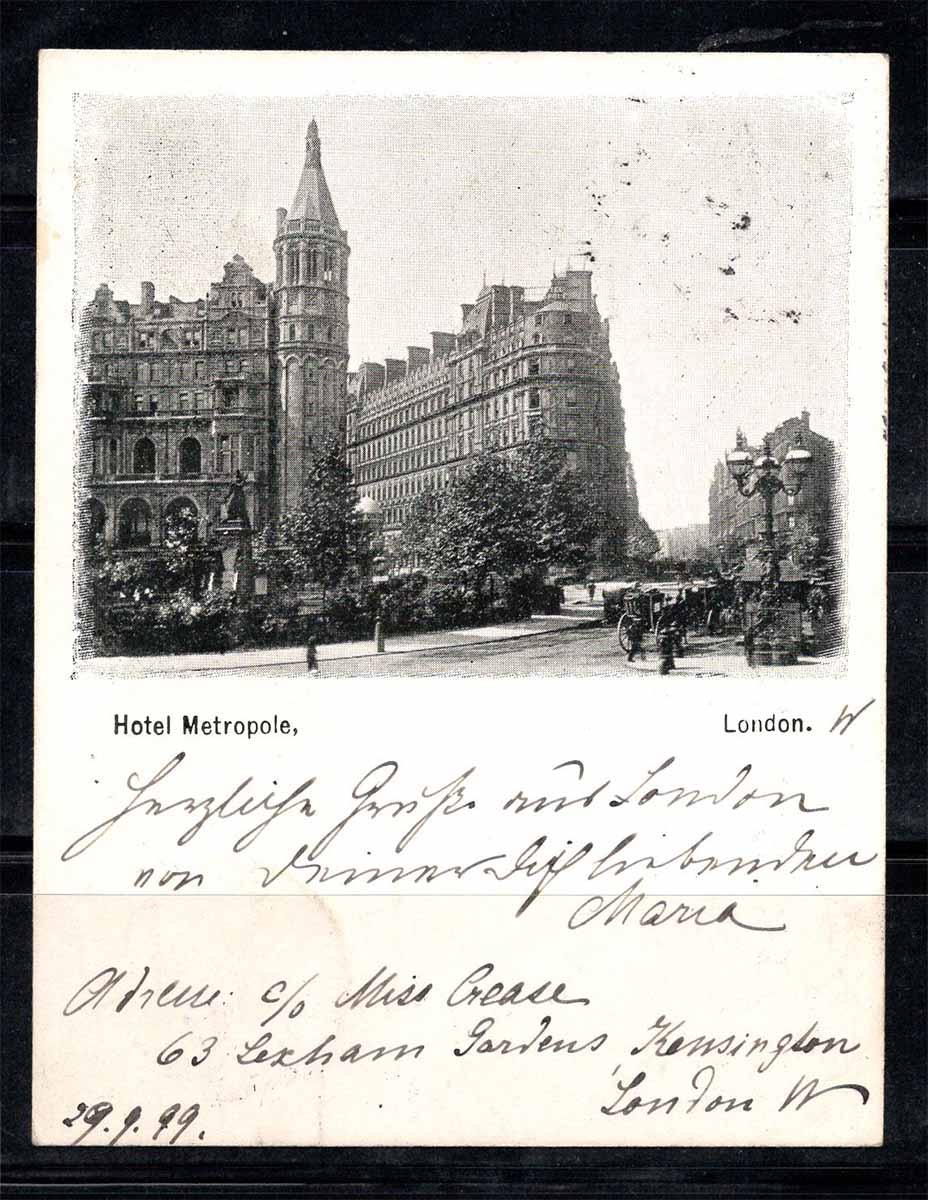 Hotel Metropole, London. W
Herzliche Grüße aus London
von Deiner Dich liebenden
Maria
Adresse: c/o Miss Crease
63 Lexham Gardens, Kensington
London W
29.9.99.